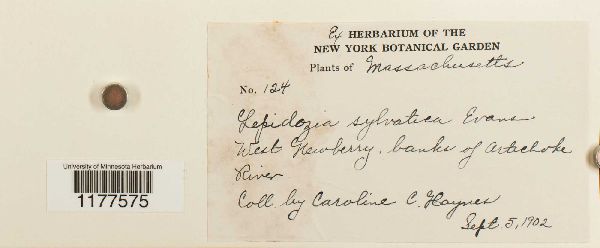 Ex HERBARIUM OF THE
NEW YORK BOTANICAL GARDEN
Plants of Massachusetts
No. 124
Lepidozia sylvatica Evans.
West Newberry, banks of Artichoke
River
Coll. by Caroline C. Haynes
Sept. 5, 1902
University of Minnesota Herbarium
1177575